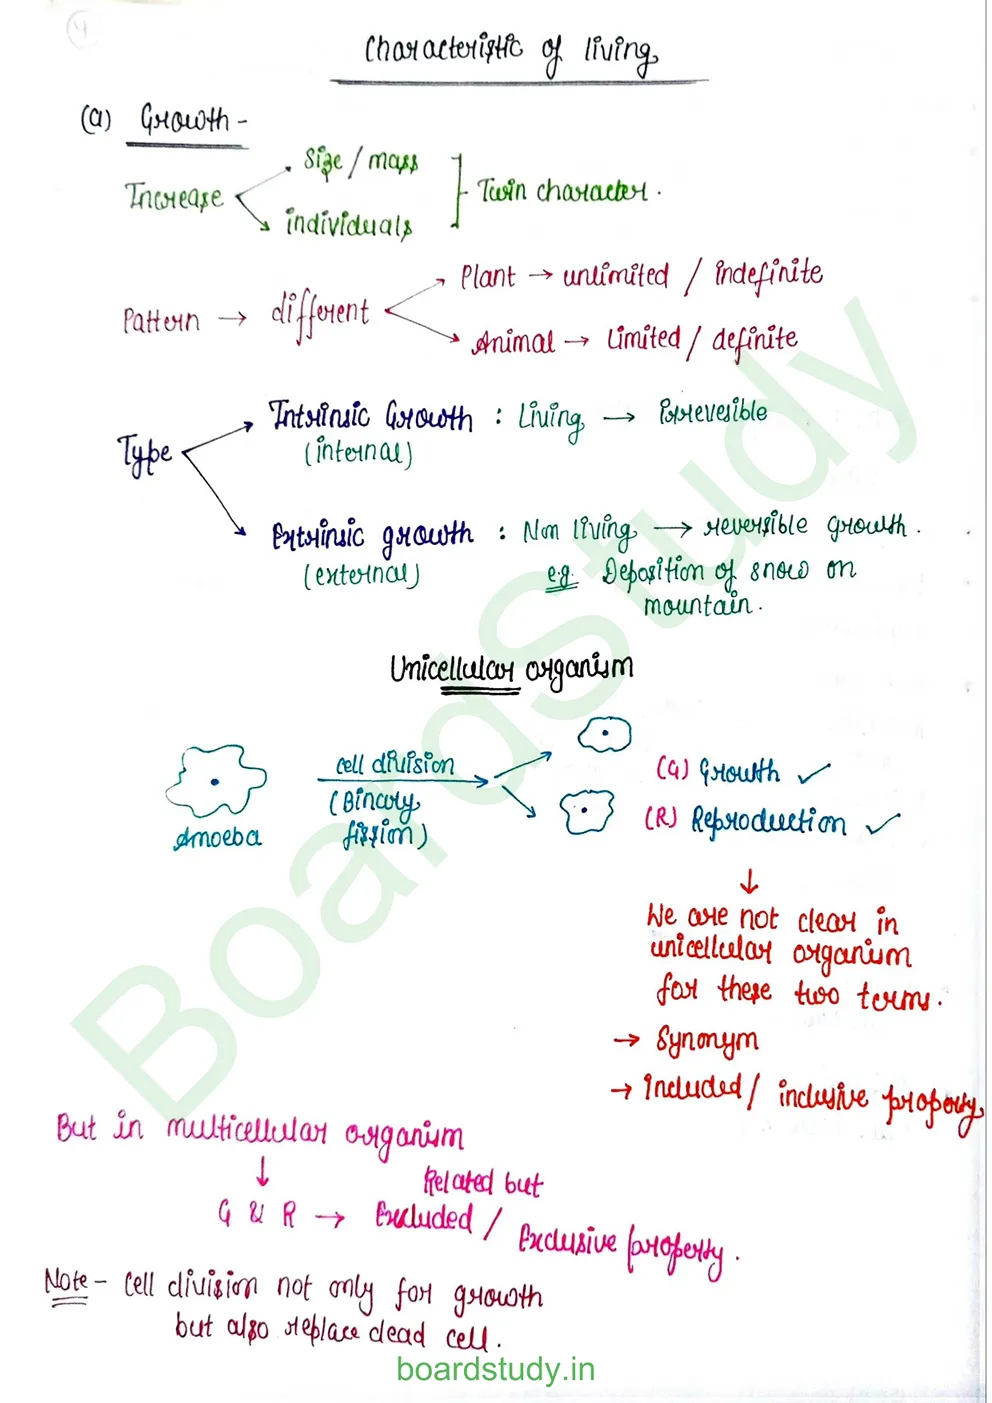 4
Characteristic of living
(a) Growth -
Increase
Size / mass
individuals
Twin character.
Pattern → different
Plant → unlimited / indefinite
Animal → Limited / definite
Type
Intrinsic Growth : Living → Irrevesible
(internal)
Extrinsic growth : Non living → reversible growth.
(external)
e.g. Deposition of snow on
mountain.
Unicellular organism
Amoeba
cell division
(Binary
fission)
(G) Growth ✓
(R) Reproduction ✓
↓
We are not clear in
unicellular organism
for these two terms.
→ Synonym
→ Included / inclusive property
But in multicellular organism
↓
Related but
G & R → Excluded / Exclusive property.
Note - Cell division not only for growth
but also replace dead cell.
BoardStudy
boardstudy.in